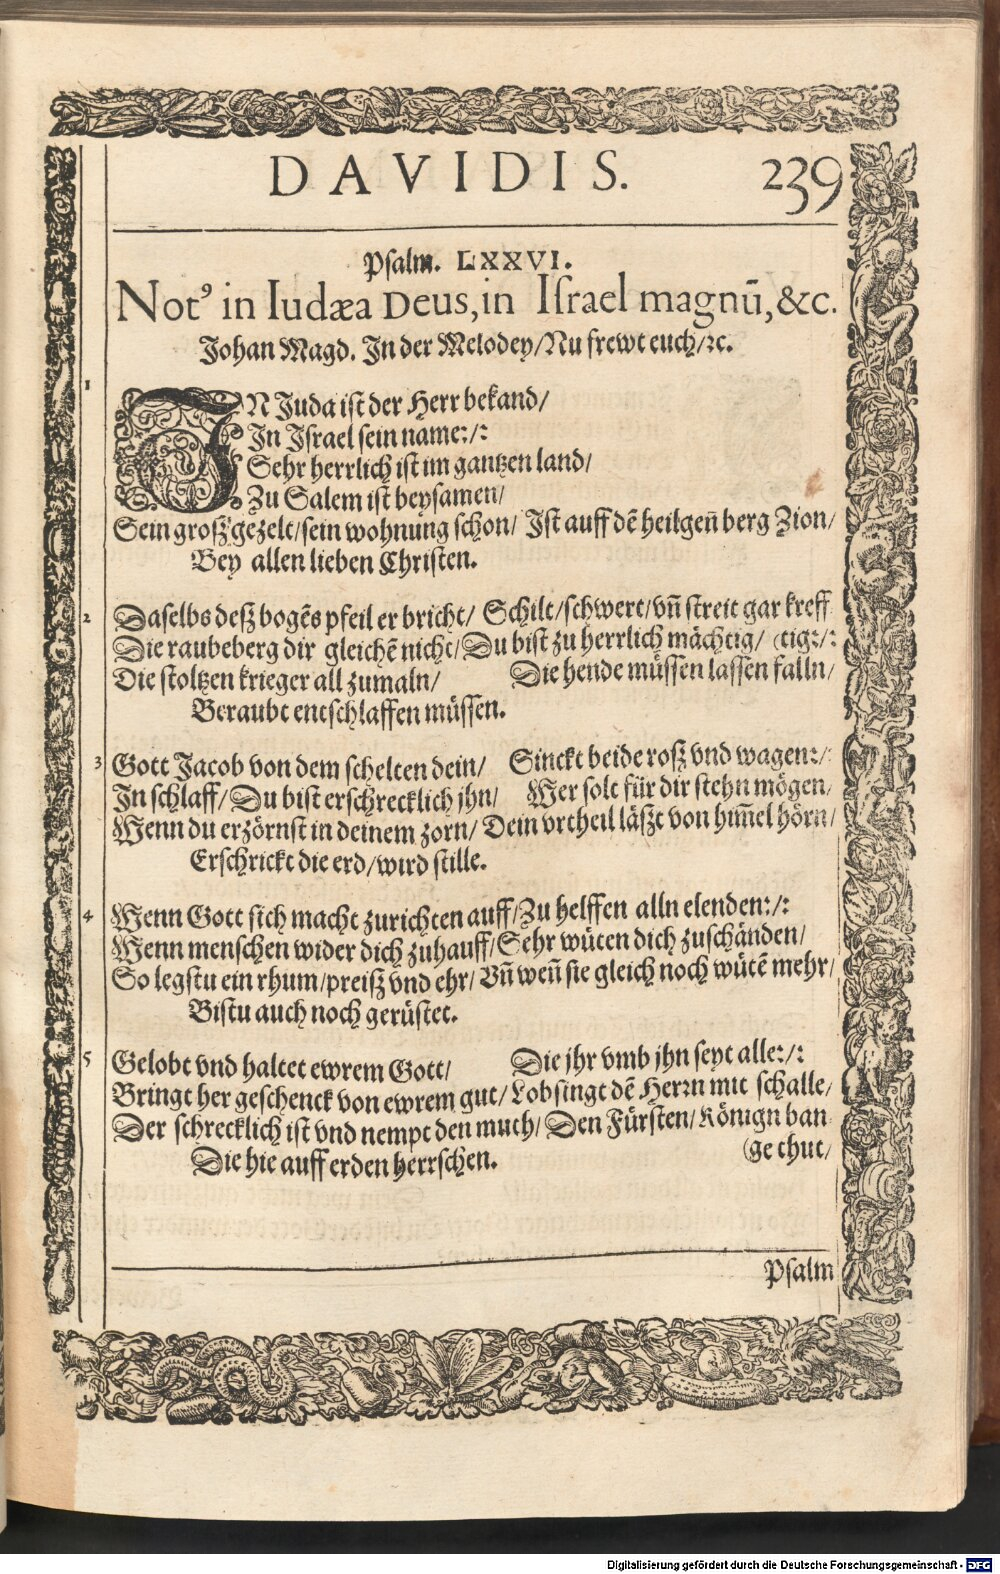 DAVIDIS. 239
Psalm. LXXVI.
Notꝰ in Iudæa Deus, in Iſrael magnū, &c.
Johan Magd. In der Melodey/Nu frewt euch/ꝛc.
1 IN Juda iſt der Herr bekand/
In Iſrael ſein name:/:
Sehr herrlich iſt im gantzen land/
Zu Salem iſt beyſamen/
Sein groſz gezelt/ſein wohnung ſchon/ Iſt auff dē heilgen̄ berg Zion/
Bey allen lieben Chriſten.
2 Daſelbs deſz bogēs pfeil er bricht/ Schilt/ſchwert/vn̄ ſtreit gar kreff
Die raubeberg dir gleichē nicht/Du biſt zu herrlich mächtig/ (tig:/:
Die ſtoltzen krieger all zumaln/ Die hende müſſen laſſen falln/
Beraubt entſchlaffen müſſen.
3 Gott Jacob von dem ſchelten dein/ Sinckt beide roſz vnd wagen:/:
In ſchlaff/Du biſt erſchrecklich jhn/ Wer ſolt für dir ſtehn mögen/
Wenn du erzörnſt in deinem zorn/ Dein vrtheil läſzt von him̄el hörn/
Erſchrickt die erd/wird ſtille.
4 Wenn Gott ſich macht zurichten auff/Zu helffen alln elenden:/:
Wenn menſchen wider dich zuhauff/Sehr wüten dich zuſchänden/
So legſtu ein rhum/preiſz vnd ehr/ Vn̄ wen̄ ſie gleich noch wütē mehr/
Biſtu auch noch gerüſtet.
5 Gelobt vnd haltet ewrem Gott/ Die jhr vmb jhn ſeyt alle:/:
Bringt her geſchenck von ewrem gut/Lobſingt dē Herꝛn mit ſchalle/
Der ſchrecklich iſt vnd nempt den muth/ Den Fürſten/Könign ban
Die hie auff erden herrſchen. (ge thut/
Pſalm
Digitalisierung gefördert durch die Deutsche Forschungsgemeinschaft - DFG